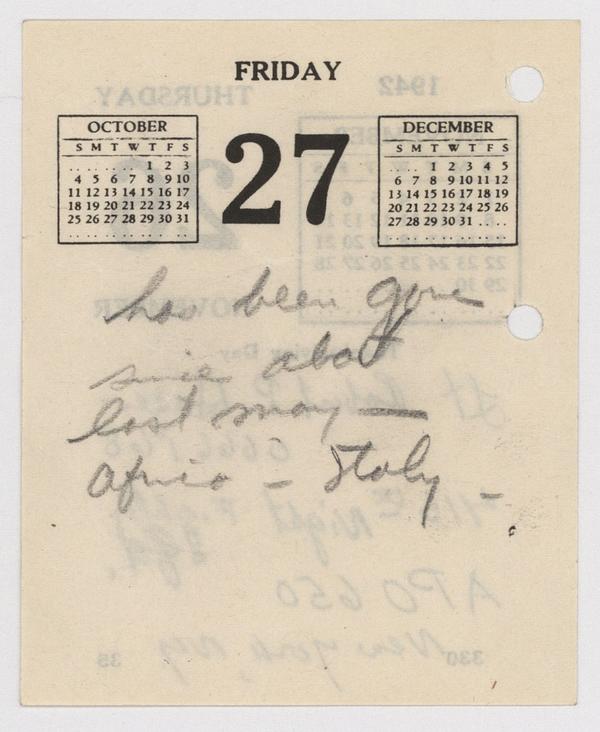 FRIDAY
OCTOBER
S M T W T F S
. . . . . . . . 1 2 3
4 5 6 7 8 9 10
11 12 13 14 15 16 17
18 19 20 21 22 23 24
25 26 27 28 29 30 31
27
DECEMBER
S M T W T F S
. . . . 1 2 3 4 5
6 7 8 9 10 11 12
13 14 15 16 17 18 19
20 21 22 23 24 25 26
27 28 29 30 31 . . . .
has been gone
since about
last may —
Africa – Italy –
1942
THURSDAY
26
NOVEMBER
APO 650
New York, NY
330
35